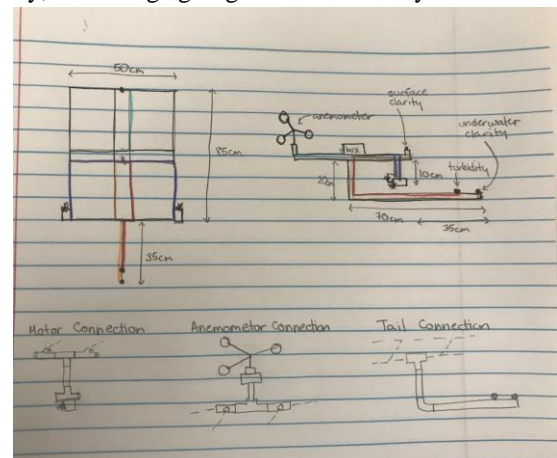 50cm
85cm
35cm
anemometer
surface
clarity
underwater
clarity
turbidity
box
10cm
20cm
70cm
35cm
Motor Connection
Anemometor Connection
Tail Connection